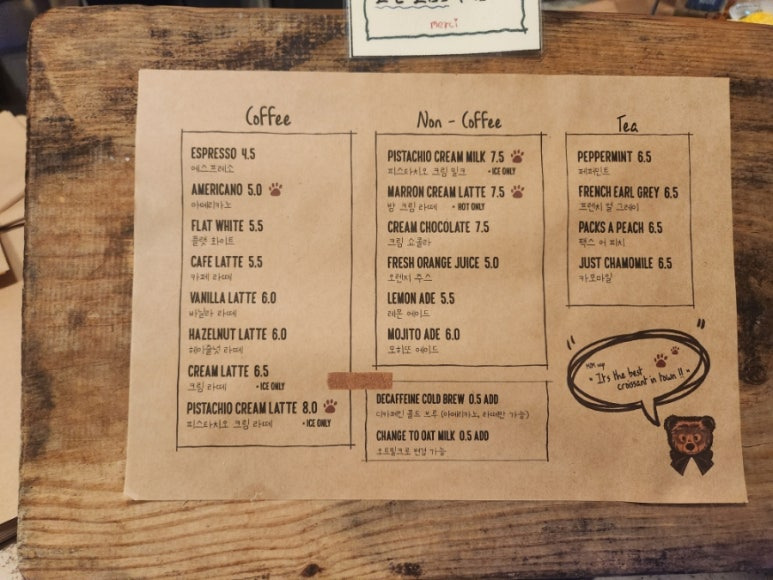 merci
Coffee
ESPRESSO 4.5
에스프레소
AMERICANO 5.0
아메리카노
FLAT WHITE 5.5
플랫 화이트
CAFE LATTE 5.5
카페 라떼
VANILLA LATTE 6.0
바닐라 라떼
HAZELNUT LATTE 6.0
헤이즐넛 라떼
CREAM LATTE 6.5
크림 라떼 • ICE ONLY
PISTACHIO CREAM LATTE 8.0
피스타치오 크림 라떼 • ICE ONLY
Non - Coffee
PISTACHIO CREAM MILK 7.5
피스타치오 크림 밀크 • ICE ONLY
MARRON CREAM LATTE 7.5
밤 크림 라떼 • HOT ONLY
CREAM CHOCOLATE 7.5
크림 쇼콜라
FRESH ORANGE JUICE 5.0
오렌지 주스
LEMON ADE 5.5
레몬 에이드
MOJITO ADE 6.0
모히또 에이드
DECAFFEINE COLD BREW 0.5 ADD
디카페인 콜드 브루 (아메리카노, 라떼만 가능)
CHANGE TO OAT MILK 0.5 ADD
오트밀크로 변경 가능
Tea
PEPPERMINT 6.5
페퍼민트
FRENCH EARL GREY 6.5
프렌치 얼 그레이
PACKS A PEACH 6.5
팩스 어 피치
JUST CHAMOMILE 6.5
카모마일
"It's the best
croissant in town !!"